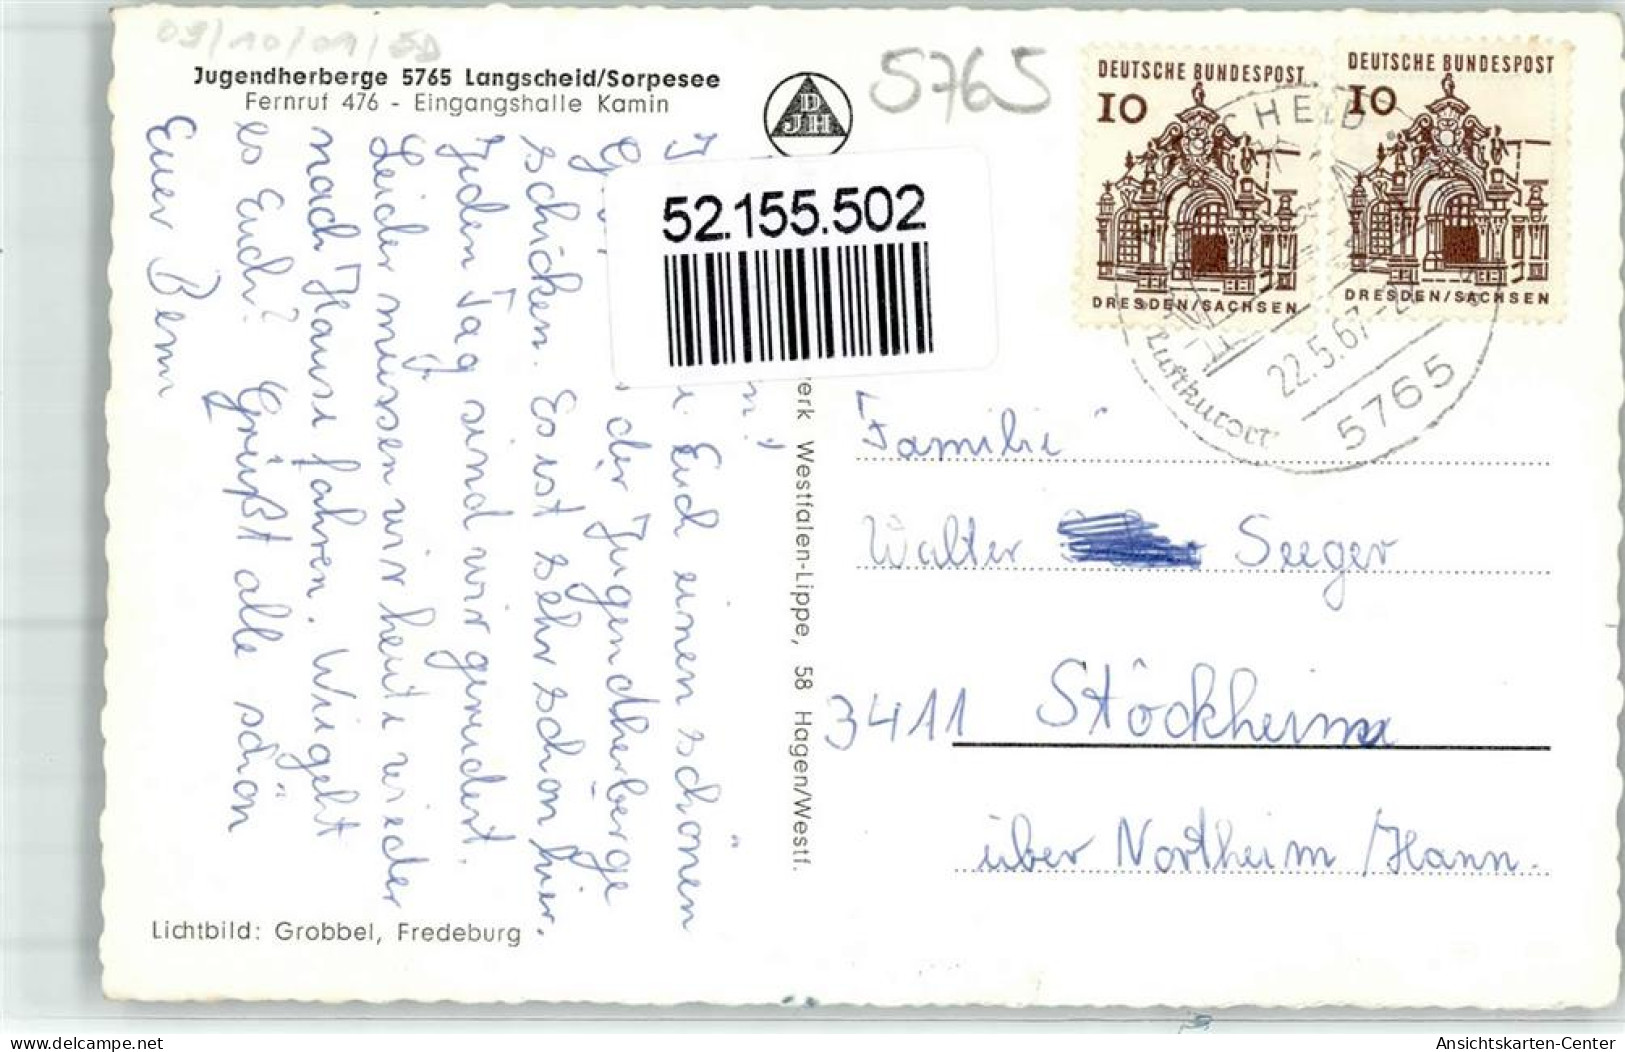 09/10/01/SD
Jugendherberge 5765 Langscheid/Sorpesee
Fernruf 476 - Eingangshalle Kamin
DJH
5765
DEUTSCHE BUNDESPOST
10
DRESDEN/SACHSEN
DEUTSCHE BUNDESPOST
10
DRESDEN/SACHSEN
SCHEID
22.5.67
5765
Luftkurort
52.155.502
Euch einen schönen
der Jugendherberge
schicken. Es ist sehr schön hier.
Jeden Tag sind wir gerudert.
Leider müssen wir heute wieder
nach Hause fahren. Wie geht
es Euch? Grüßt alle schön
Euer Bernn
erk Westfalen-Lippe, 58 Hagen/Westf.
Familie
Walter Seeger
3411 Stöckheim
über Northeim /Hann.
Lichtbild: Grobbel, Fredeburg
www.delcampe.net
Ansichtskarten-Center